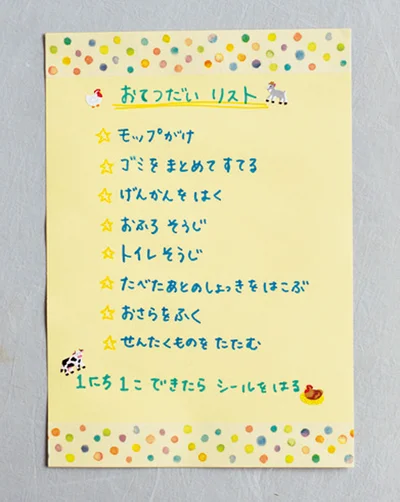 おてつだい リスト
モップがけ
ゴミをまとめてすてる
げんかんをはく
おふろ そうじ
トイレそうじ
たべたあとのしょっきをはこぶ
おさらをふく
せんたくものをたたむ
1にち1こ できたら シールをはる